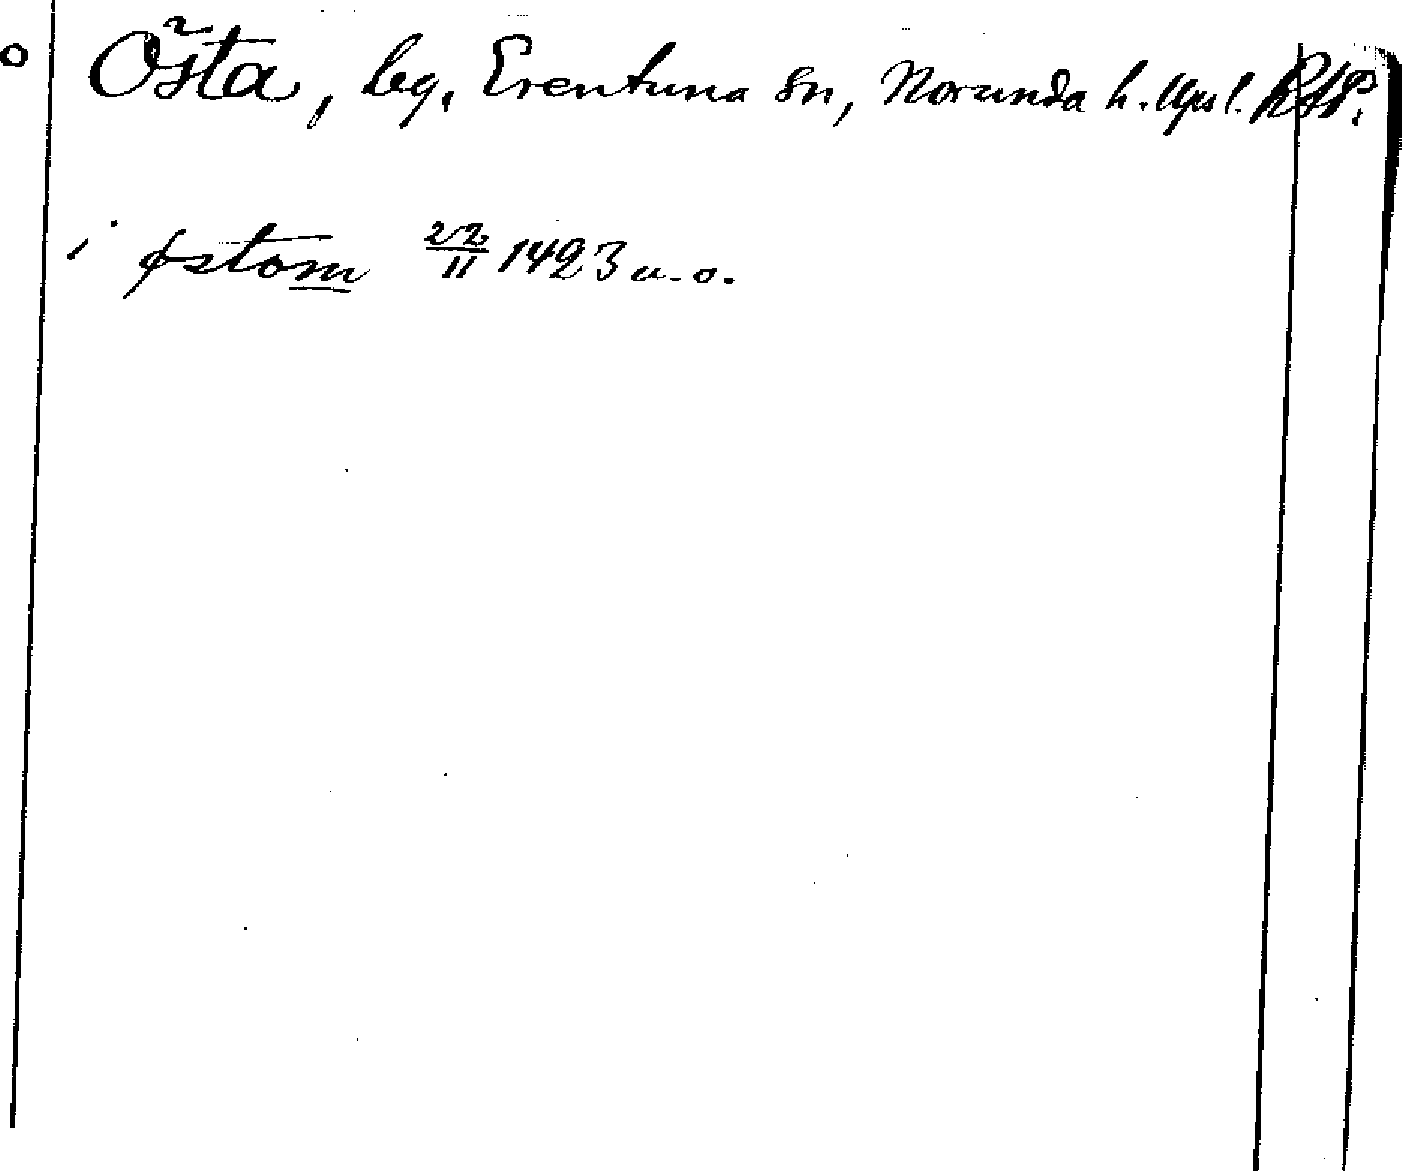 Östa, by, Ärentuna sn, Norunda h. Upsl. RAP.
i østom 22/11 1423 u.o.